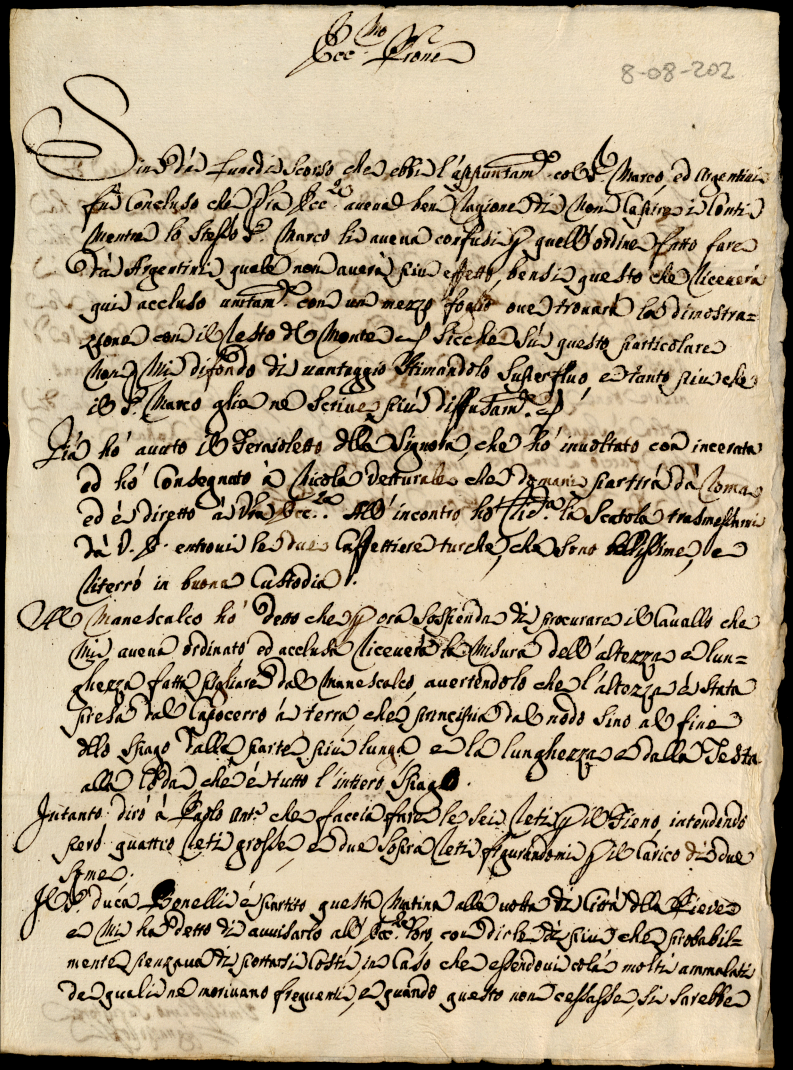 Ecc.mo Prone
8-08-202
Sin da Lunedi scorso che ebbi l'appuntam.to col S.r Marco, ed Argentini
fu concluso che V'ra Ecc.za aveva ben ragione di non capire i conti
mentre lo stesso S.r Marco li aveva confusi p quell'ordine fatto fare
da Argentini quale non averà più effetto, bensi questo che riceverà
qui accluso unitam.te con un mezzo foglio ove trovarà la dimostra=
zione con il resto del Monte sicche sù questo particolare
non mi difondo di vantaggio stimandolo superfluo, e tanto più che
il S.r Marco glie ne scrive più diffusam.te
Già hò avuto il Feraioletto della Signora, che hò involtato con incerata
ed hò consegnato à Nicola Vetturale che domani partirà da Roma
ed è diretto à V'ra Ecc.za. All'incontro hò ric.to la scatola trasmessami
da V. E. entrovi le due caffettiere turche, che sono bellissime, e
riterrò in buona custodia.
Al Manescalco hò detto che p ora sospenda di procurare il Cavallo che
mi aveva ordinato ed acclusa riceverà la misura dell'altezza e lun=
ghezza fatta pigliare dal Manescalco, avertendolo che l'altezza è stata
presa dal Capocerro à terra, che principia dal nodo sino al fine
dello spago dalla parte più lunga e la lunghezza e dalla Testa
alla Coda, che è tutto l'intiero spago.
Intanto dirò à Paolo Ant.o che faccia fare le sei reti p il Fieno, intendendo
però quattro reti grosse, e due sopra reti figurandomi p il carico di due
some.
Il S.r Duca Bonelli è partito questa matina alla volta di Città della Pieve
e mi ha detto di avvisarlo all'Ecc.ze Loro, con dirle di più che probabil=
mente pensava di portarsi costì, in caso che essendovi colà molti ammalati
de quali ne morivano frequenti, e quando questo non cessasse, si sarebbe